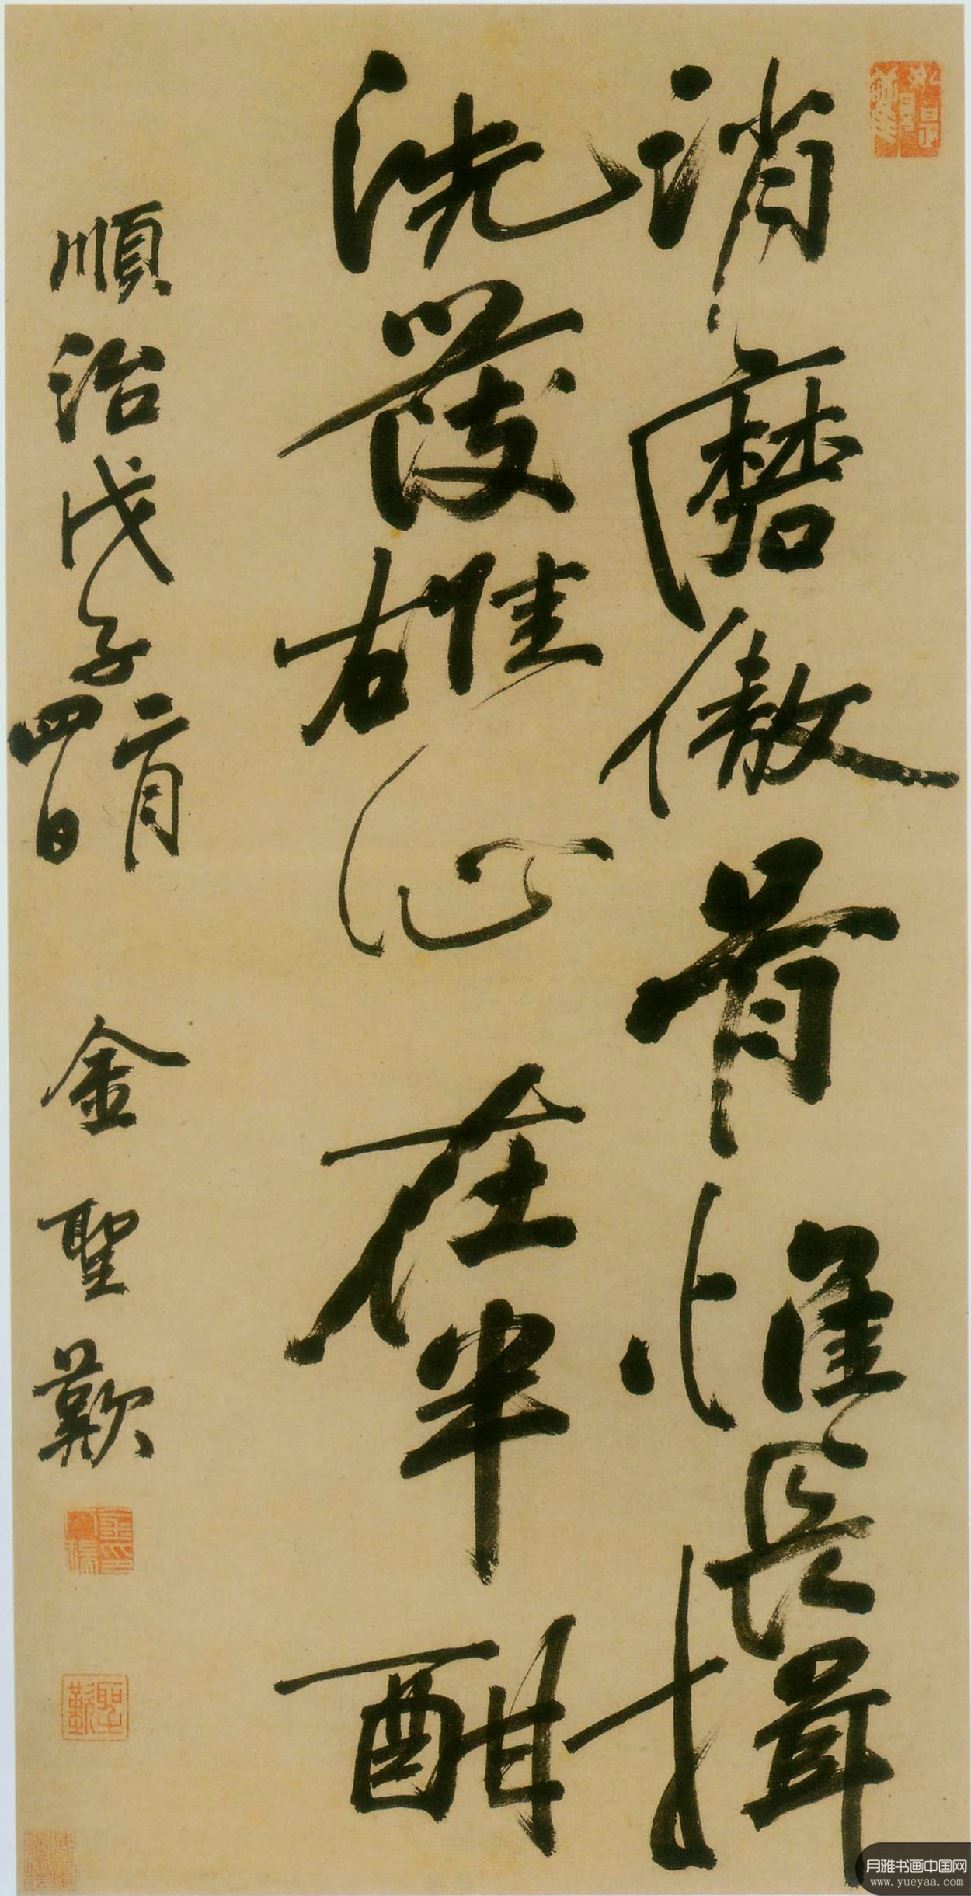 消磨傲骨惟長揖
洗發雄心在半酣
順治戊子二月
四日
金聖歎
聖歎
月雅书画中国网
www.yueyaa.com